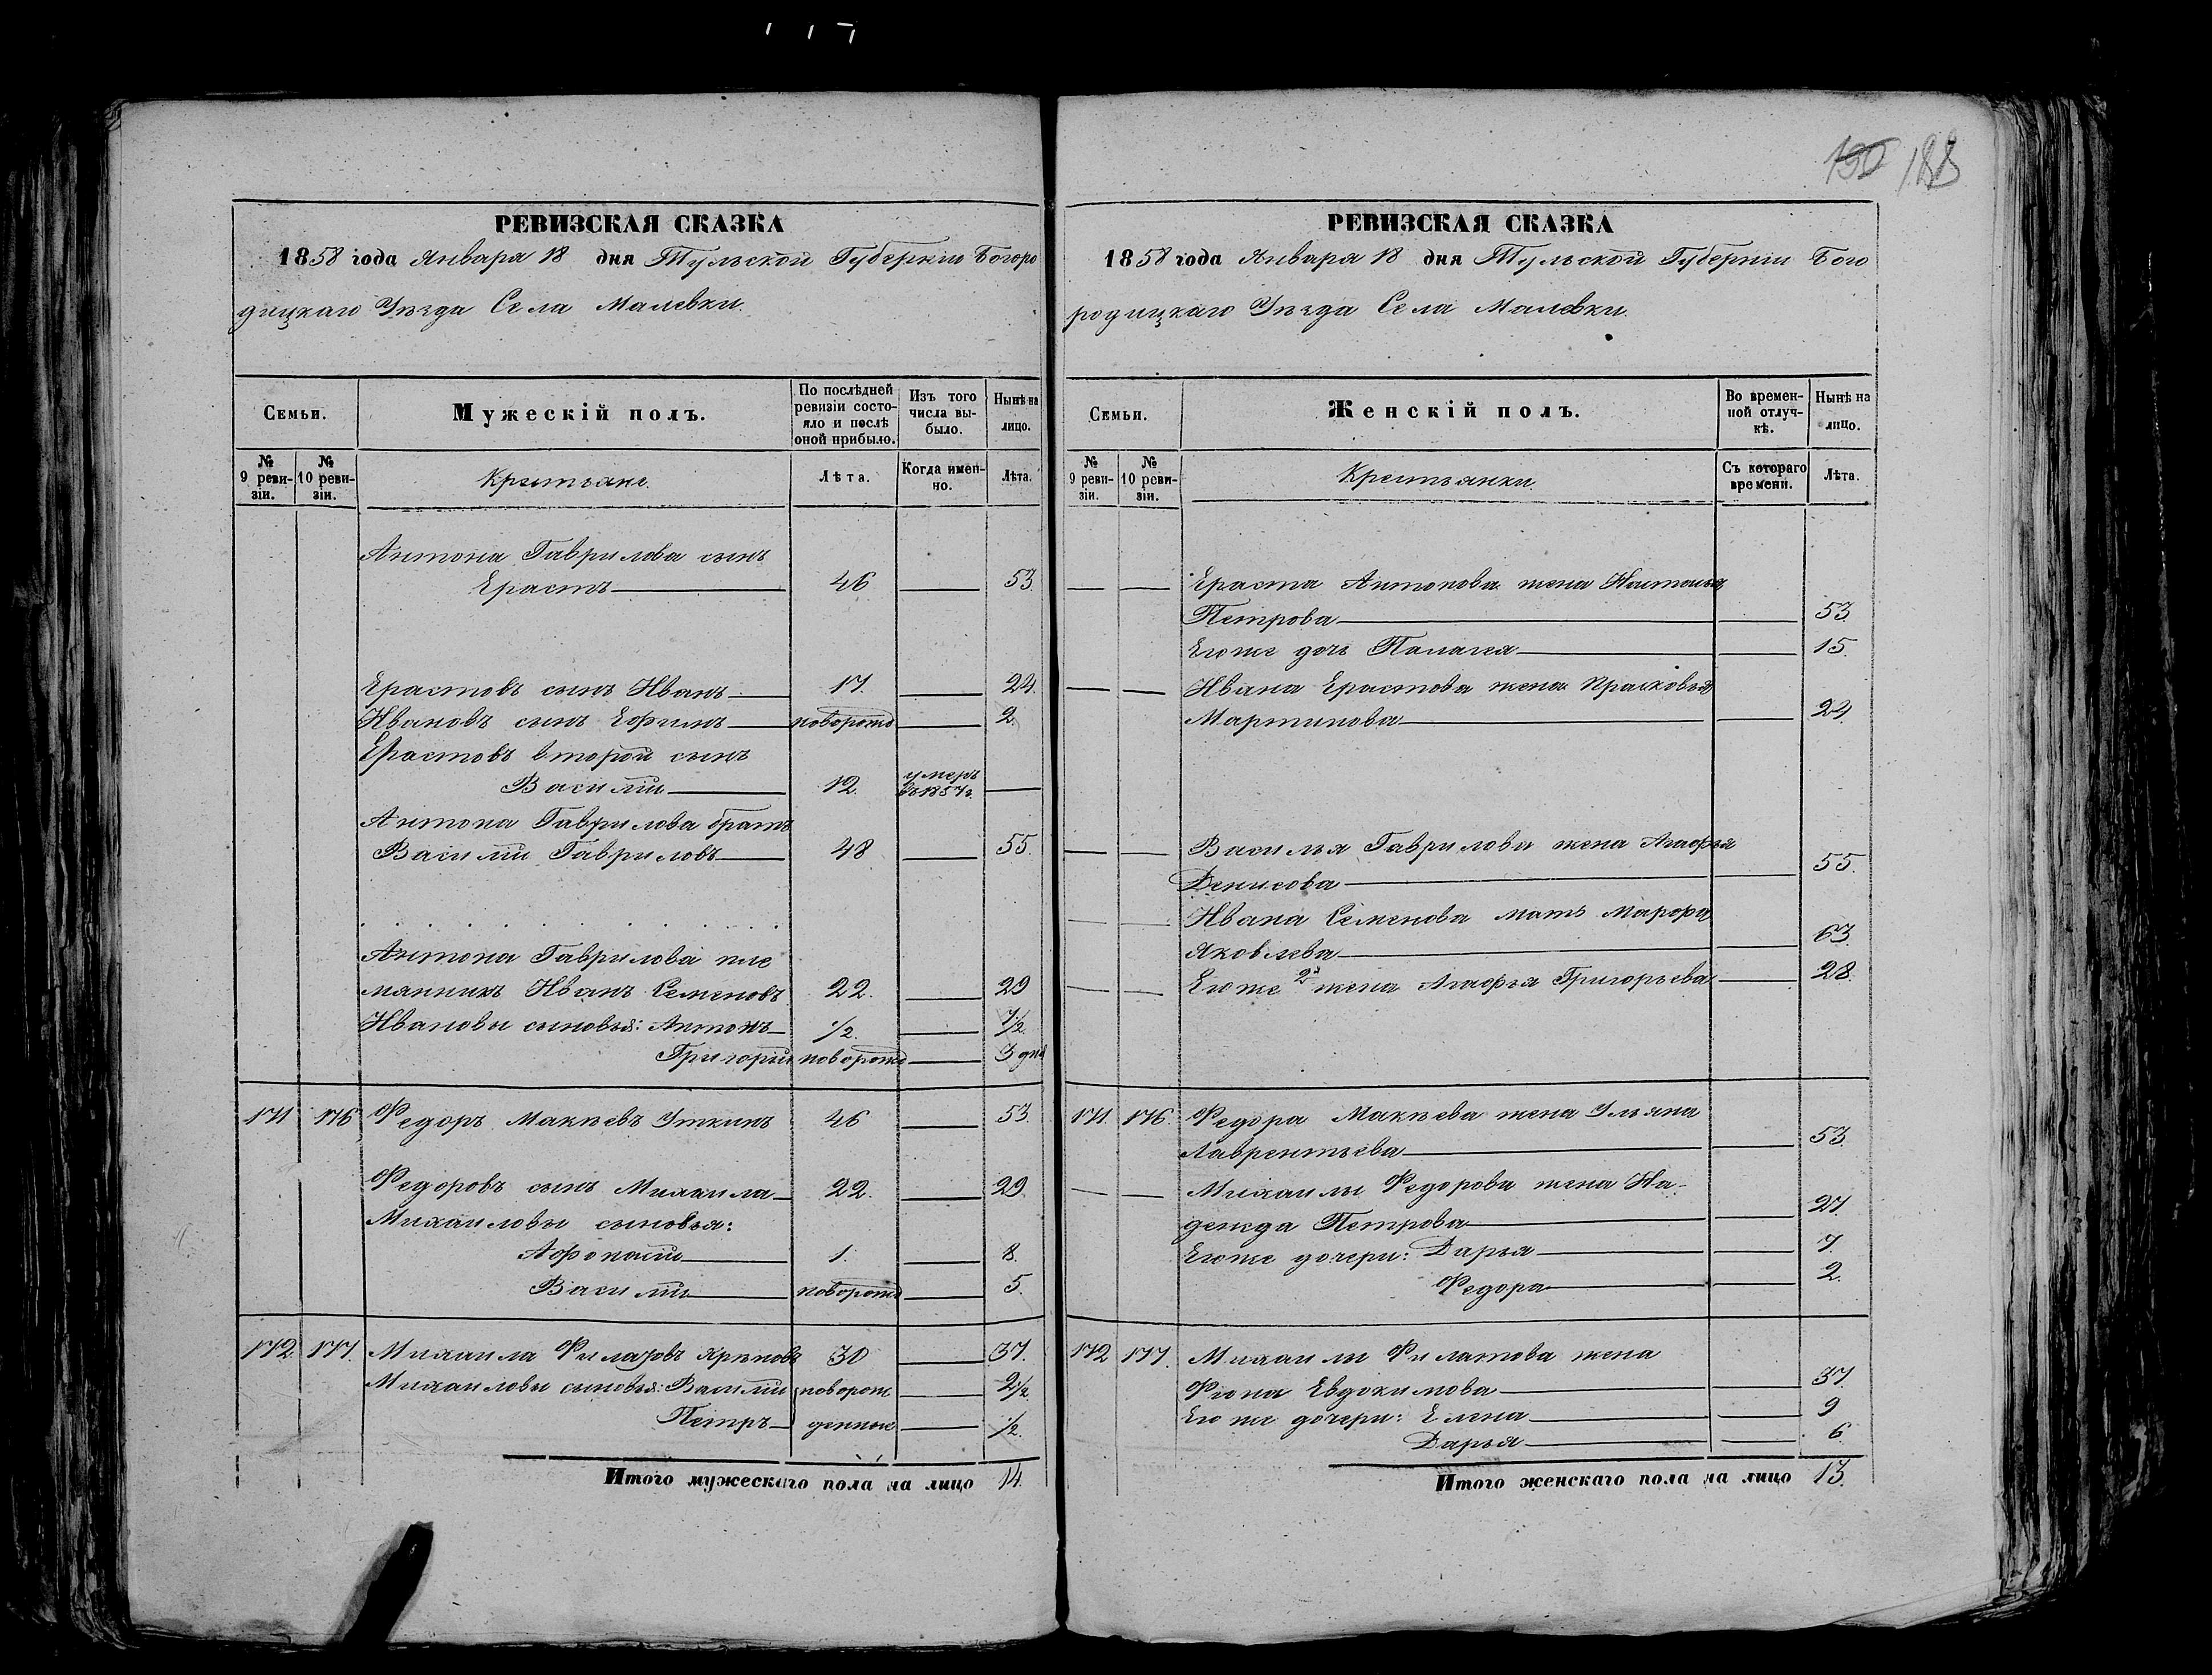 190 188
РЕВИЗСКАЯ СКАЗКА
1858 года Января 18 дня Тульской Губернiи Богоро
дицкаго Уѣзда Села Малевки.
Семьи.
Мужескiй полъ.
По послѣдней ревизiи состояло и послѣ оной прибыло.
Изъ того числа выбыло.
Нынѣ на лицо.
№ 9 ревизiи.
№ 10 ревизiи.
Крестьяне.
Лѣта.
Когда именно.
Лѣта.
Антона Гаврилова сынъ
Ерастъ 46 53.
Ерастовъ сынъ Иванъ 17. 24.
Ивановъ сынъ Ефимъ новорожд 2.
Ерастовъ второй сынъ
Василiй 12. умеръ въ 1857г.
Антона Гаврилова братъ
Василiй Гавриловъ 48 55.
Антона Гаврилова пле
мянникъ Иванъ Семеновъ 22. 29
Ивановы сыновья: Антонъ 1/2. 7 1/2.
Григорiй новорожд 3 дня
171 176 Федоръ Макѣевъ Уткинъ 46 53.
Федоровъ сынъ Михаила 22. 29
Михаиловы сыновья:
Афонасiй 1. 8.
Василiй новорожд 5.
172. 177. Михаила Филатовъ 30 37.
Михаиловы сыновья: Василiй новорож 2 1/2.
Петръ денные 1/2.
Итого мужескаго пола на лицо 14.
РЕВИЗСКАЯ СКАЗКА
1858 года Января 18 дня Тульской Губернiи Бого
родицкаго Уѣзда Села Малевки.
Семьи.
Женскiй полъ.
Во временной отлучкѣ.
Нынѣ на лицо.
№ 9 ревизiи.
№ 10 ревизiи.
Крестьянки.
Съ котораго времени.
Лѣта.
Ераста Антонова жена Наталья
Петрова 53.
Егоже дочь Палагея 15.
Ивана Ерастова жена Прасковья
Мартинова 24.
Василья Гаврилова жена Агафья
Денисова 55.
Ивана Семенова мать Марфа
Яковлева 63.
Егоже 2я жена Агафья Григорьева 28.
171. 176. Федора Макѣева жена Ульяна
Лаврентьева 53.
Михаилы Федорова жена На-
дежда Петрова 27.
Егоже дочери: Дарья 7.
Федора 2.
172 177. Михаилы Филатова жена
Фiона Евдокимова 37.
Егоже дочери: Елена 9
Дарья 6.
Итого женскаго пола на лицо 13.